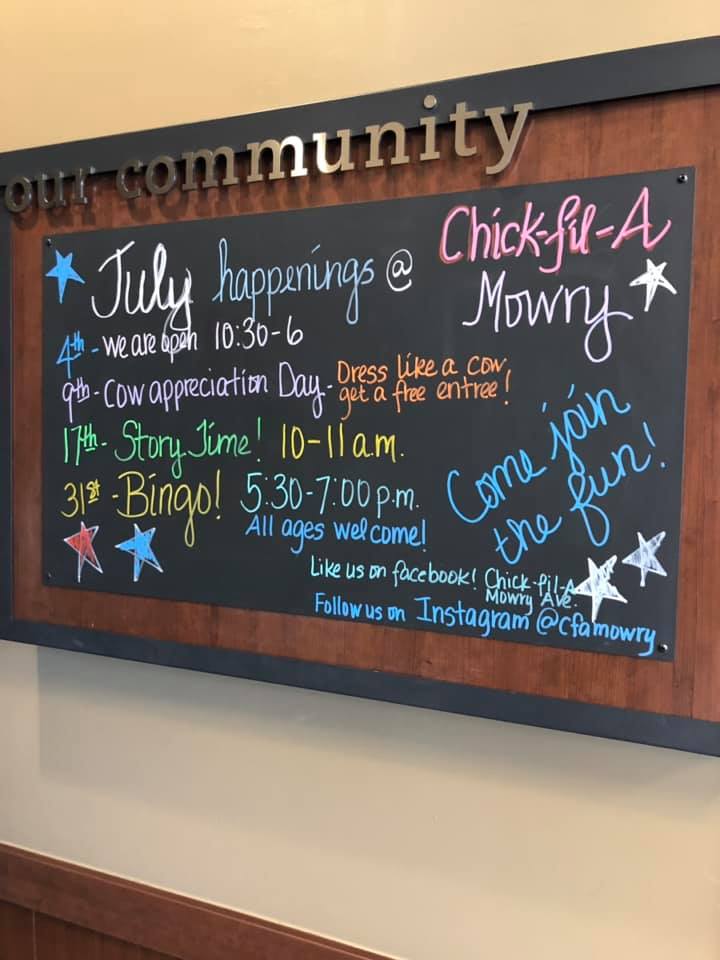 our community
July happenings @ Chick-fil-A
Mowry
4th - we are open 10:30-6
9th - Cow appreciation Day - Dress like a cow,
get a free entree!
17th - Story Time! 10-11 a.m.
31st - Bingo! 5:30-7:00 p.m.
All ages welcome!
Come join
the fun!
Like us on facebook! Chick-fil-A
Mowry Ave.
Follow us on Instagram @cfamowry